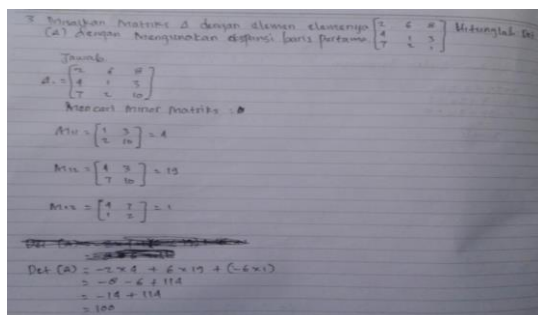 3. Misalkan Matriks A dengan elemen elemennya [2 6 8
4 1 3
7 2 1] Hitunglah Det
(A) dengan Mengunakan ekspansi baris pertama
Jawab
A = [2 6 8
4 1 3
7 2 10]
Mencari Minor Matriks :
M11 = [1 3
2 10] = 4
M12 = [4 3
7 10] = 19
= [4 7
1 2] = 1
Det (A) = -2 x 4 + 6 x 19 + (-6 x 1)
= -8 - 6 + 114
= -14 + 114
= 100